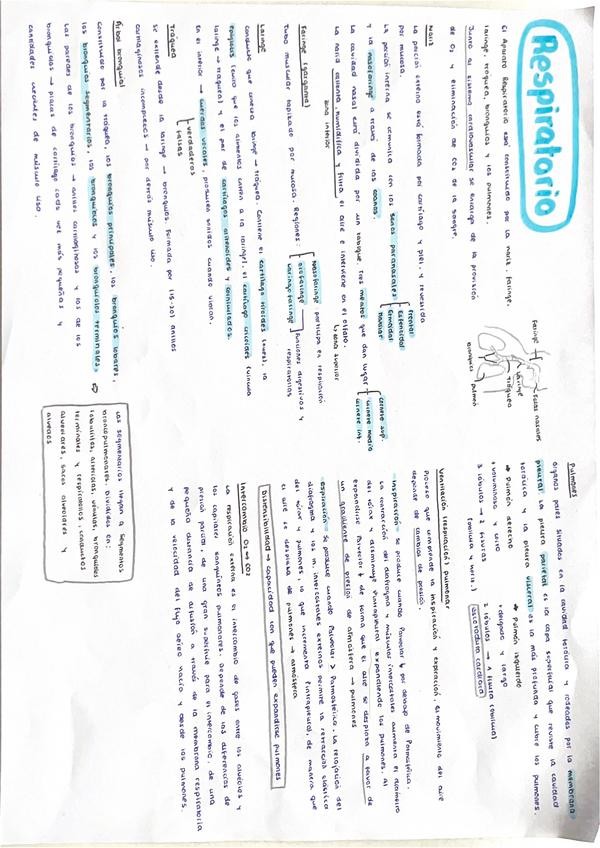 Respiratorio
El Aparato Respiratorio está constituido por la nariz, faringe,
laringe, tráquea, bronquios y los pulmones.
Junto al sistema cardiovascular se encarga de la provisión
de O2 y eliminación de CO2 de la sangre.
Faringe
Fosas nasales
Laringe
Tráquea
Bronquios
Pulmón
Nariz
La porción externa está formada por cartílago y piel, y revestida
por mucosa.
La porción interna se comunica con los senos paranasales
Frontal
Esfenoidal
Etmoidal
Maxilar
y la nasofaringe a través de las coanas.
La cavidad nasal está dividida por un tabique. Tres meatos que dan lugar
Cornete sup.
Cornete medio
Cornete inf.
La nariz calienta, humidifica y filtra el aire e interviene en el olfato.
zona inferior
zona superior
Faringe (garganta)
Tubo muscular tapizado por mucosa. Regiones:
Nasofaringe participa en respiración
Orofaringe
Laringofaringe
Funciones digestivas y
respiratorias
Laringe
Conducto que conecta faringe → tráquea. Contiene el cartílago tiroides (nuez), la
epiglotis (evita que los alimentos entren a la laringe), el cartílago cricoides (vincula
laringe → tráquea) y el par de cartílagos aritenoides y corniculados.
En el interior → cuerdas vocales, producen sonidos cuando vibran.
verdaderas
falsas
Tráquea
Se extiende desde la laringe → bronquios. Formada por (15-20) anillos
cartilaginosos incompletos → por detrás músculo liso.
Árbol bronquial
Constituido por la tráquea, los bronquios principales, los bronquios lobares,
los bronquios segmentarios, los bronquiolos y los bronquiolos terminales.
Las paredes de los bronquios → anillos cartilaginosos y las de los
bronquiolos → placas de cartílago cada vez más pequeñas y
cantidades crecientes de músculo liso.
Los segmentarios llegan a segmentos
broncopulmonares. Divididos en:
lobulillos, arteriolas, vénulas, bronquiolos
terminales y respiratorios, conductos
alveolares, sacos alveolares y
alveolos
Pulmones
Órganos pares situados en la cavidad torácica y rodeados por la membrana
pleural. La pleura parietal es la capa superficial que reviste la cavidad
torácica y la pleura visceral es la más profunda y cubre los pulmones.
→ Pulmón derecho
+ voluminoso y corto
3 lóbulos → 2 fisuras
(oblicua y horiz.)
→ Pulmón izquierdo
+ delgado y largo
2 lóbulos → 1 fisura (oblicua)
Escotadura cardiaca
Ventilación (respiración) pulmonar
Proceso que comprende la inspiración y espiración. El movimiento del aire
depende de cambios de presión.
Inspiración → se produce cuando Palveolar ↓ por debajo de Patmosférica.
La contracción del diafragma y músculos intercostales aumenta el diámetro
del tórax y disminuye Pintrapleural expandiendo los pulmones. Al
expandirse Palveolar ↓ de forma que el aire se desplaza a favor de
un gradiente de presión de atmósfera → pulmones
espiración → se produce cuando Palveolar > Patmosférica. La relajación del
diafragma y los m. intercostales externos permite la retracción elástica
del tórax y pulmones, lo que incrementa Pintrapleural, de manera que
el aire se desplaza de pulmones → atmósfera
Distensibilidad → capacidad con que pueden expandirse pulmones
Intercambio O2 → CO2
La respiración externa es el intercambio de gases entre los alveolos y
los capilares sanguíneos pulmonares. Depende de las diferencias de
presión parcial, de una gran superficie para el intercambio, de una
pequeña distancia de difusión a través de la membrana respiratoria
y de la velocidad del flujo aéreo hacia y desde los pulmones.